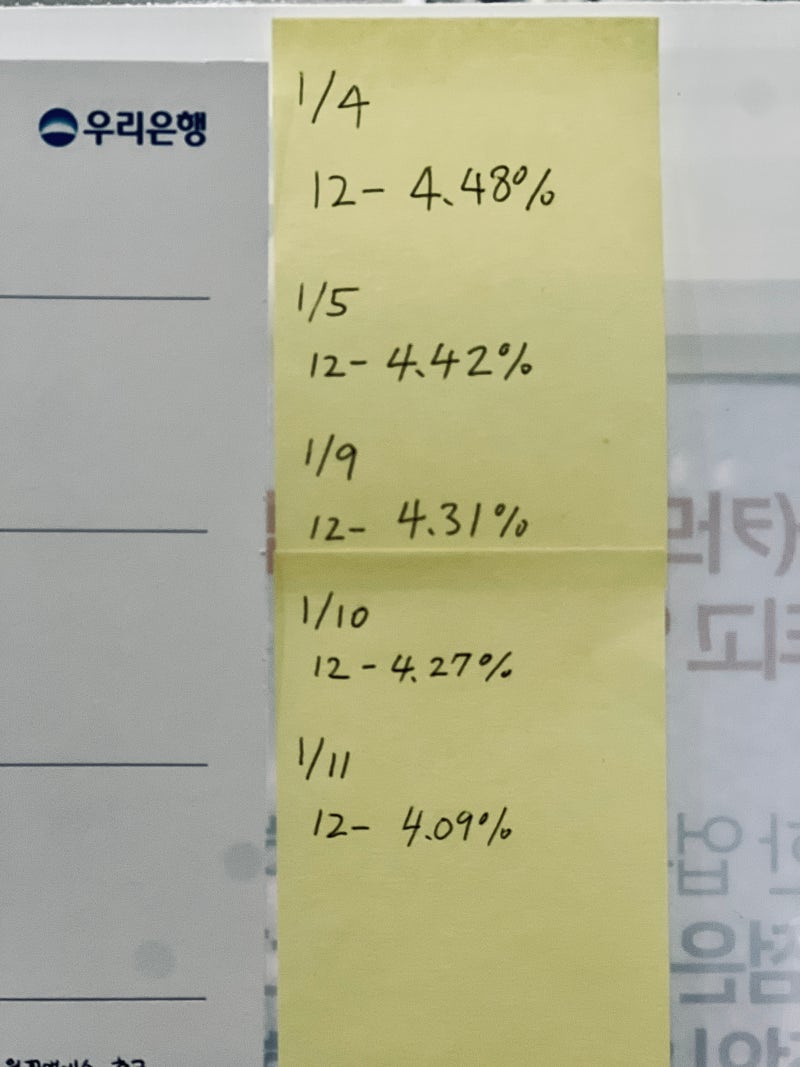 우리은행
1/4
12- 4.48%
1/5
12- 4.42%
1/9
12- 4.31%
1/10
12- 4.27%
1/11
12- 4.09%